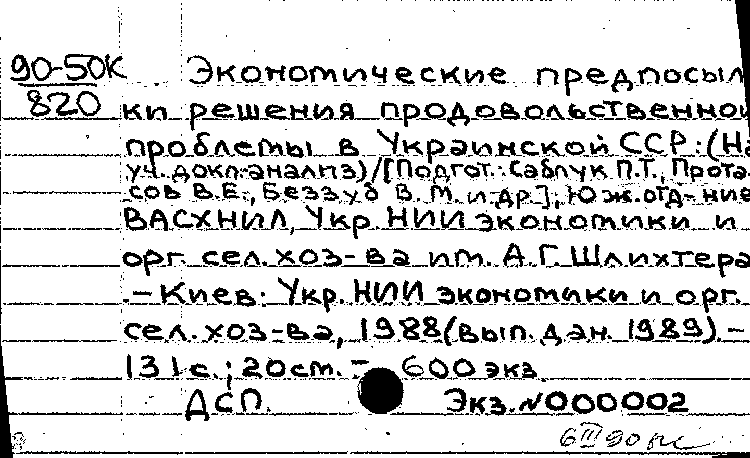 90-50К
820
Экономические предпосыл
ки решения продовольственной
проблемы в Украинской ССР: (На
уч. докл.-анализ)/[Подгот.: Саблук П.Т., Прота
сов В.Е., Беззуб В.М. и др.]; Юж. отд-ние
ВАСХНИЛ, Укр. НИИ экономики и
орг. сел. хоз-ва им. А.Г. Шлихтера
.-Киев: Укр. НИИ экономики и орг.
сел. хоз-ва, 1988 (вып. дан. 1989).-
131 с.; 20 см. - 600 экз.
ДСП. Экз. N000002
6 III 90